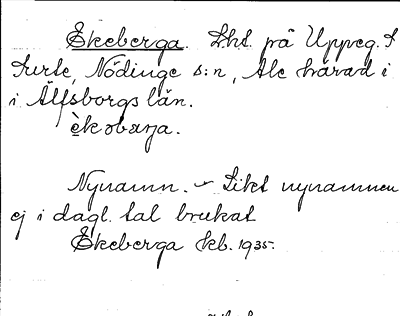 Ekeberga. Lht på Uppeg. t
Surte, Nödinge s:n, Ale härad i
i Älfsborgs län.
èkobærja.
Nynamn. – Likt nynamnen
ej i dagl. tal brukat
Ekeberga kb. 1935.